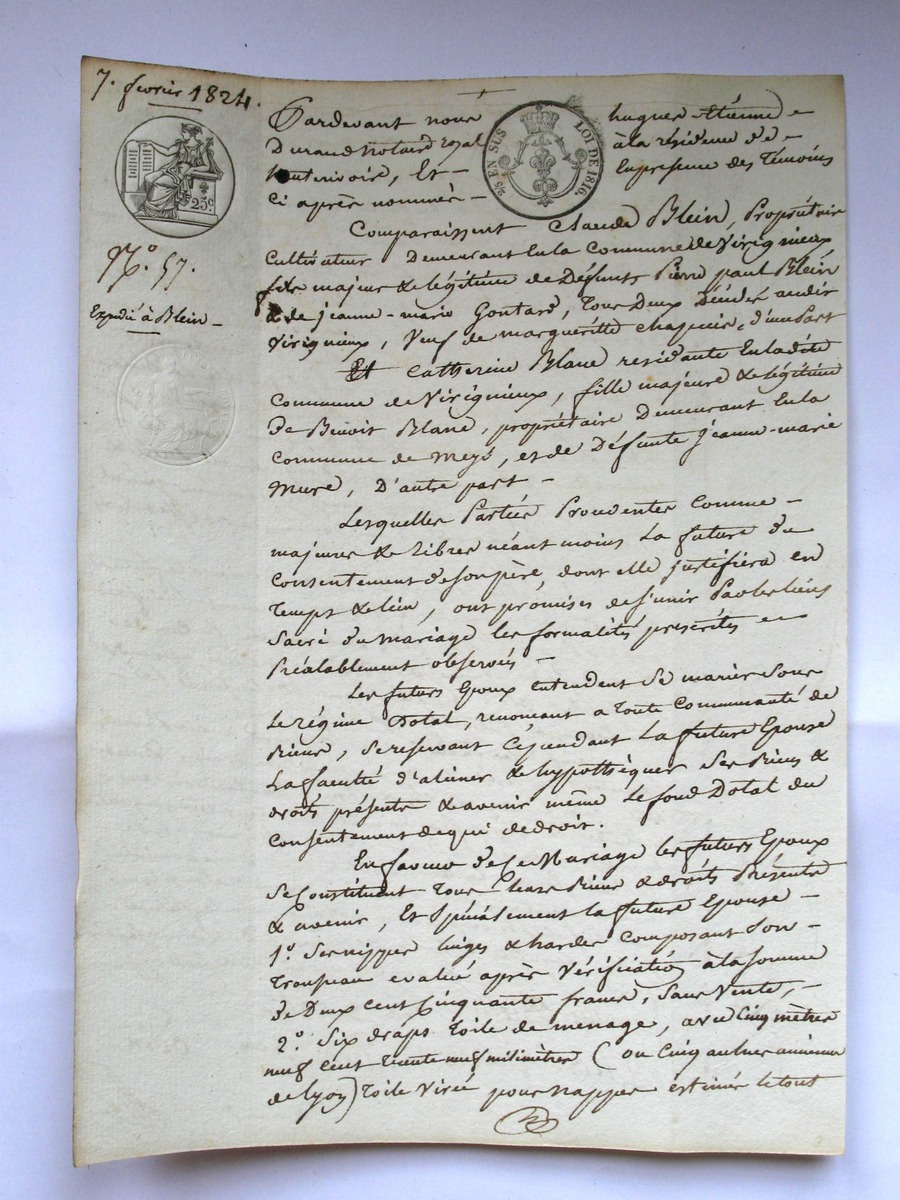 7. fevrier 1824.
25c
N.o 57.
Expédié à Blein
EN SUS
LOI DE 1816.
Pardevant nous hugues Etienne
Durand Notaire royal à la résidence de
hauterivoire, Et En presence des Témoins
ci après nommés
Comparaissent Claude Blein, Propriétaire
Cultivateur Demeurant En la Commune de Virigneux
fils majeur & légitime de Défunts Pierre paul Blein
& de jeanne-marie Gontard, Tous Deux Décédés audit
Virigneux, Veuf de margueritte chapuis, d'une Part
Et Catherine Blanc residante En ladite
Commune de Virigneux, fille majeure & légitime
De Benoit Blanc, propriétaire Demeurant En la
Commune de Meys, et de Défunte jeanne-marie
Mure, D'autre part
Lesquelles Parties Procédentes Comme
majeures & Libres néantmoins La future du
Consentement de son père, dont elle justifiera en
Temps & lieu, ont promises de s'unir Par les liens
Sacré du Mariage les formalités prescrites
Préalablement observés
Les futurs Epoux entendent Se marier Sous
Le régime Dotal, renonçant a Toute Communauté de
Biens, Se reservant Cépendant La future Epouse
La faculté d'aliéner & hyppothéquer Ses Biens &
droits présents & avenir même Le fond Dotal du
Consentement de qui de droit.
En faveur de Ce Mariage les futurs Epoux
Se Constituent Tous Leurs Biens & droits Présents
& avenir, Et Spécialement la future Epouse
1.o Ses nippes linges & hardes Composant Son
Trousseau evalué après Vérification à la Somme
de Deux Cent Cinquante francs, Sans Vente,
2.o Six draps Toile de menage, avec Cinq mètres
neuf Cent Trente neuf milimètres (ou Cinq aulnes anciennes
de lyon) Toile Virée pour nappes estimés le tout